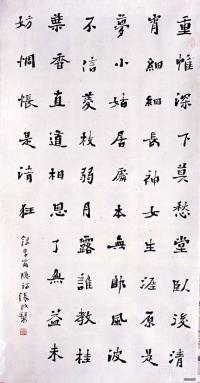 重帷深下莫愁堂臥後清
宵細細長神女生涯原是
夢小姑居處本無郎風波
不信菱枝弱月露誰教桂
葉香直道相思了無益未
妨惆悵是清狂
錄李商隱詩張改琴